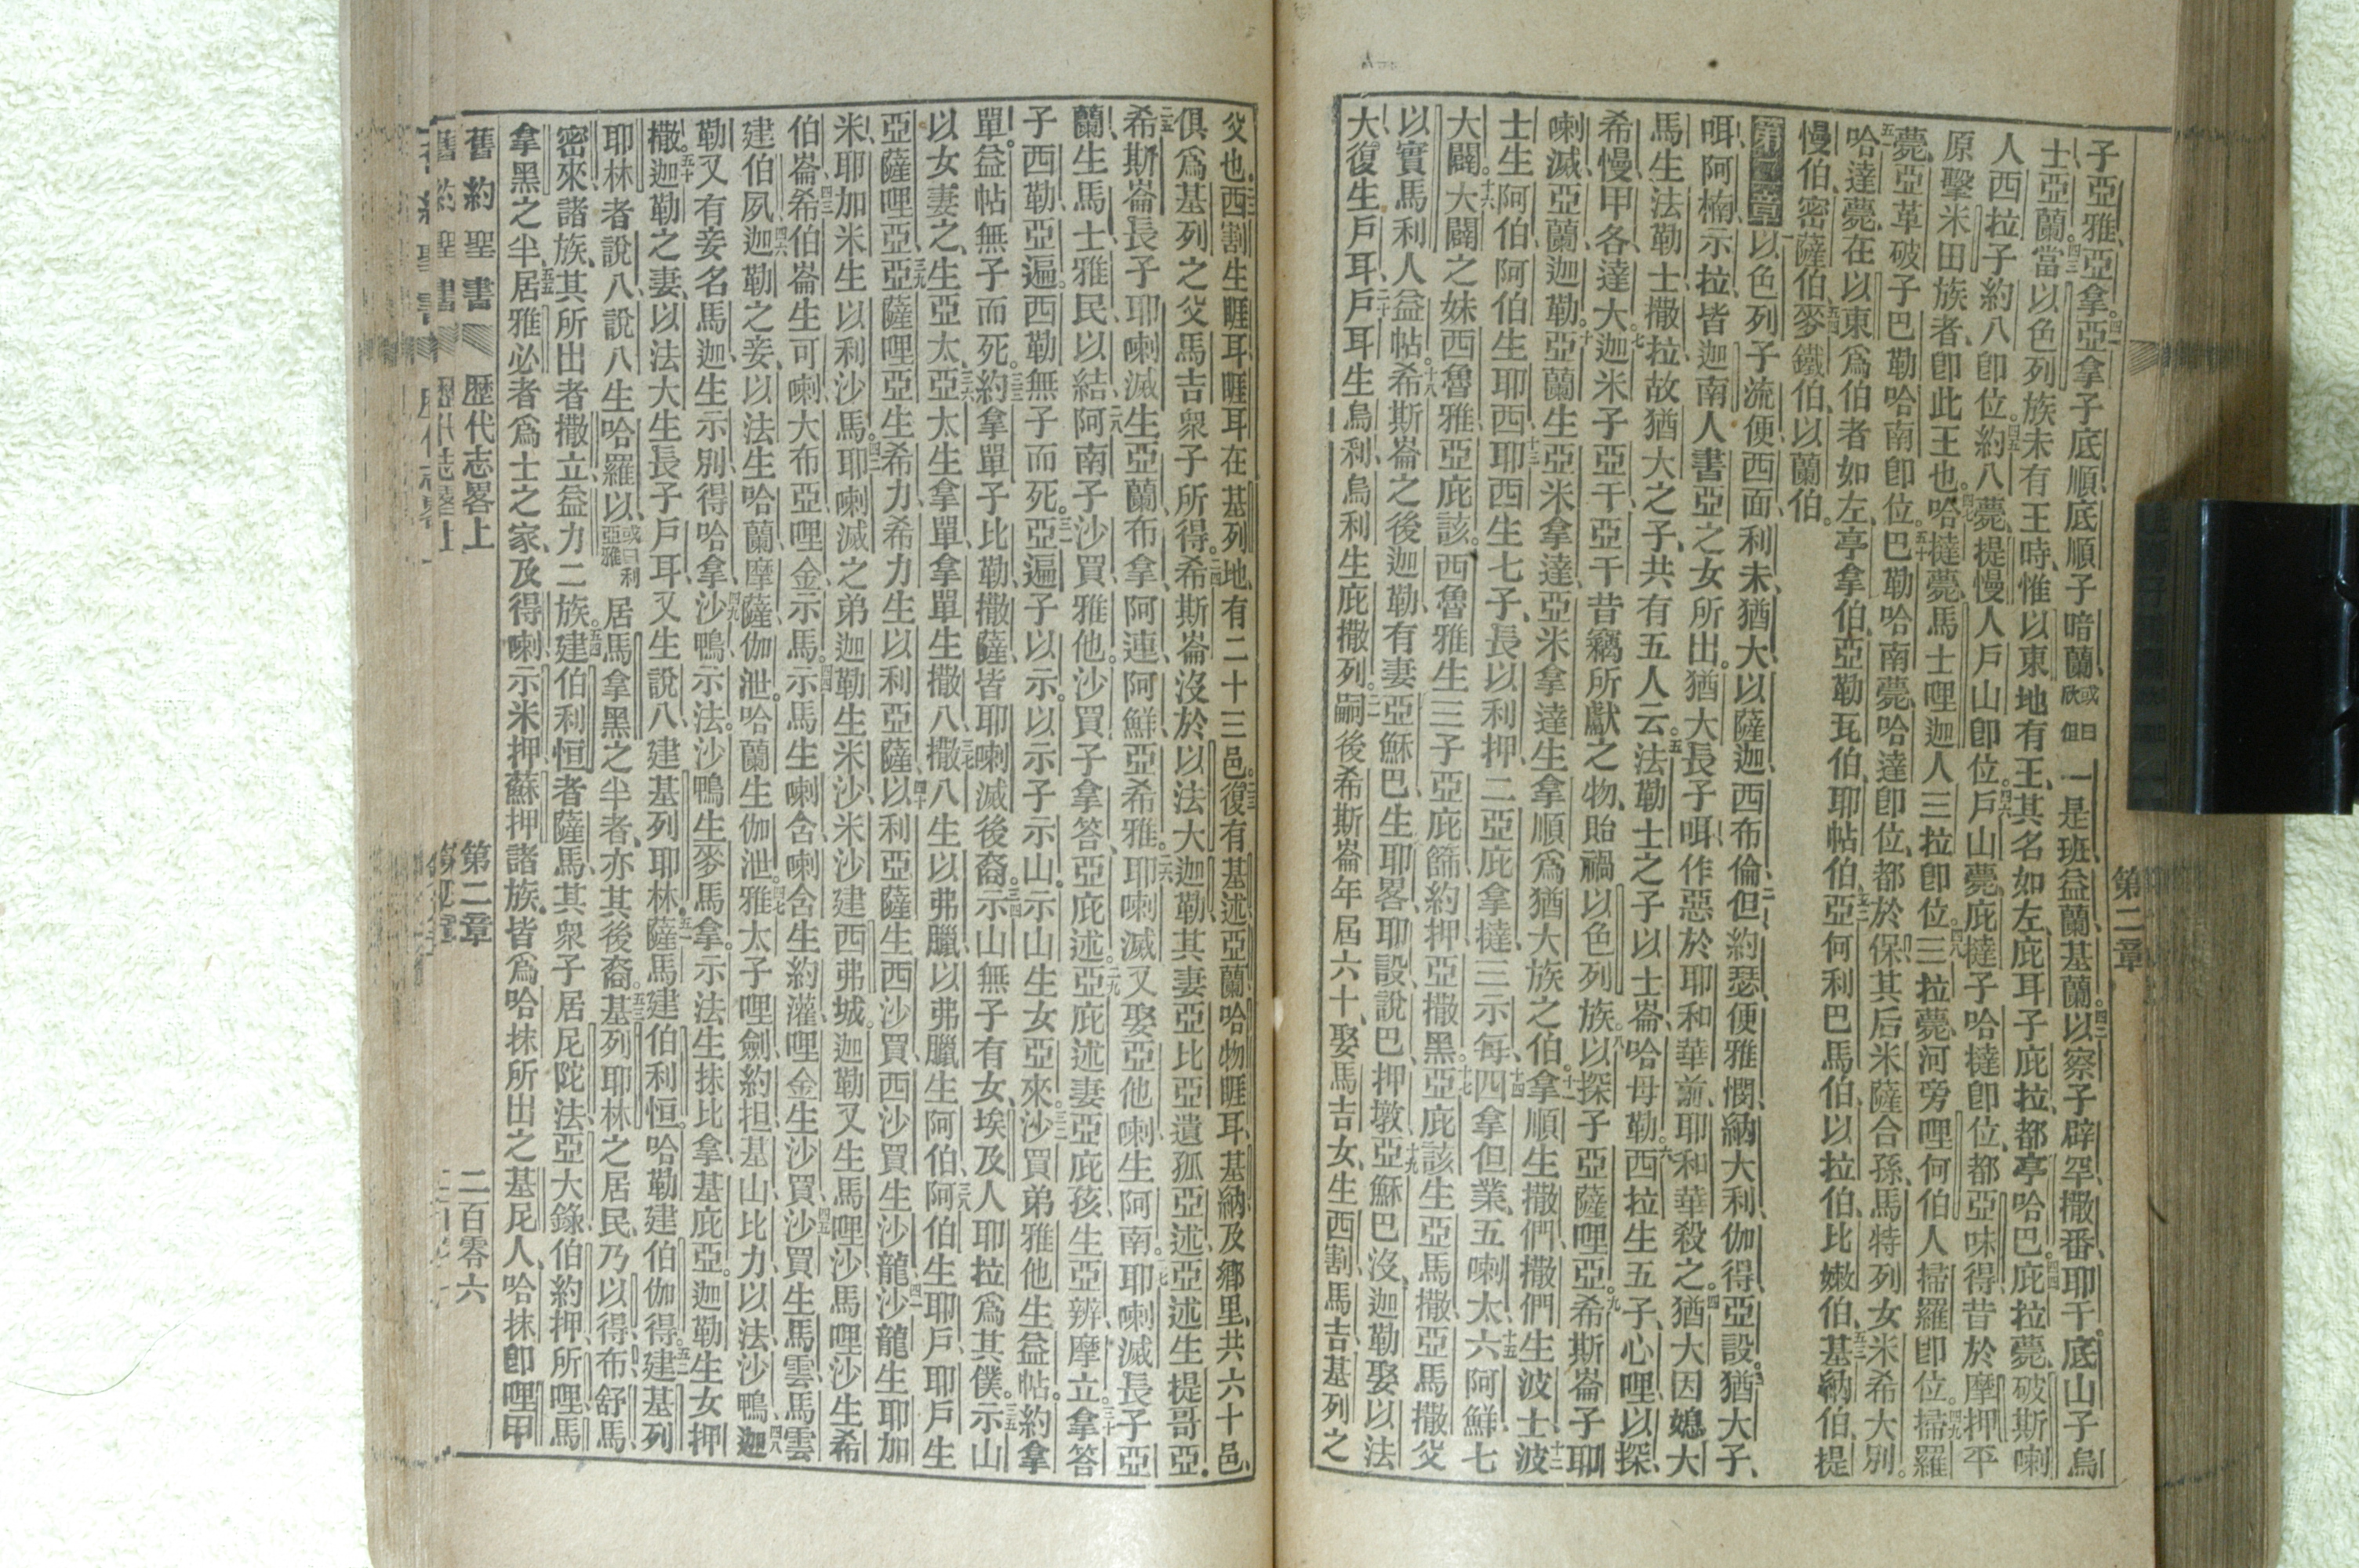 子亞雅亞拿四一亞拿子底順底順子暗蘭或曰欣但一是班益蘭基蘭四二以察子辟罕撒番耶干底山子烏
士亞蘭四三當以色列族未有王時惟以東地有王其名如左庇耳子庇拉都亭哈巴四四庇拉薨破斯喇
人西拉子約八卽位四五約八薨提慢人戶山卽位四六戶山薨庇撻子哈撻卽位都亞味得昔於摩押平
原擊米田族者卽此王也四七哈撻薨馬士哩迦人三拉卽位四八三拉薨河旁哩何伯人掃羅卽位四九掃羅
薨亞革破子巴勒哈南卽位五十巴勒哈南薨哈達卽位都於保其后米薩合孫馬特列女米希大別
五一哈達薨在以東爲伯者如左亭拿伯亞勒瓦伯耶帖伯五二亞何利巴馬伯以拉伯比嫩伯五三基納伯提
慢伯密薩伯五四麥鐵伯以蘭伯
第二章 一以色列子流便西面利未猶大以薩迦西布倫二但約瑟便雅憫納大利伽得亞設三猶大子
咡阿楠示拉皆迦南人書亞之女所出猶大長子咡作惡於耶和華前耶和華殺之四猶大因媳大
馬生法勒士撒拉故猶大之子共有五人云五法勒士之子以士崙哈母勒六西拉生五子心哩以探
希慢甲各達大七迦米子亞干亞干昔竊所獻之物貽禍以色列族八以探子亞薩哩亞九希斯崙子耶
喇滅亞蘭迦勒十亞蘭生亞米拿達亞米拿達生拿順爲猶大族之伯十一拿順生撒們撒們生波士十二波
士生阿伯阿伯生耶西十三耶西生七子長以利押二亞庇拿撻三示每十四四拿但業五喇太十五六阿鮮七
大闢十六大闢之妹西魯雅亞庇該西魯雅生三子亞庇篩約押亞撒黑十七亞庇該生亞馬撒亞馬撒父
以實馬利人益帖十八希斯崙之後迦勒有妻亞穌巴生耶畧耶設說巴押墩十九亞穌巴沒迦勒娶以法
大復生戶耳二十戶耳生烏利烏利生庇撒列二一嗣後希斯崙年屆六十娶馬吉女生西割馬吉基列之
第二章
父也二二西割生睚耳睚耳在基列地有二十三邑二三復有基述亞蘭哈物睚耳基納及鄉里共六十邑
俱爲基列之父馬吉衆子所得二四希斯崙沒於以法大迦勒其妻亞比亞遺孤亞述亞述生提哥亞
二五希斯崙長子耶喇滅生亞蘭布拿阿連阿鮮亞希雅二六耶喇滅又娶亞他喇生阿南二七耶喇滅長子亞
蘭生馬士雅民以結二八阿南子沙買雅他沙買子拿答亞庇述二九亞庇述妻亞庇孩生亞辨摩立三十拿答
子西勒亞遍西勒無子而死三一亞遍子以示以示子示山示山生女亞來三二沙買弟雅他生益帖約拿
單益帖無子而死三三約拿單子比勒撒薩皆耶喇滅後裔三四示山無子有女埃及人耶拉爲其僕三五示山
以女妻之生亞太三六亞太生拿單拿單生撒八三七撒八生以弗臘以弗臘生阿伯三八阿伯生耶戶耶戶生
亞薩哩亞三九亞薩哩亞生希力希力生以利亞薩四十以利亞薩生西沙買西沙買生沙龍四一沙龍生耶加
米耶加米生以利沙馬四二耶喇滅之弟迦勒生米沙米沙建西弗城迦勒又生馬哩沙馬哩沙生希
伯崙四三希伯崙生可喇大布亞哩金示馬四四示馬生喇含喇含生約灌哩金生沙買四五沙買生馬雲馬雲
建伯夙四六迦勒之妾以法生哈蘭摩薩伽泄哈蘭生伽泄四七雅太子哩劍約担基山比力以法沙鴨四八迦
勒又有妾名馬迦生示別得哈拿四九沙鴨示法沙鴨生麥馬拿示法生抹比拿基庇亞迦勒生女押
撒五十迦勒之妻以法大生長子戶耳又生說八建基列耶林五一薩馬建伯利恒哈勒建伯伽得五二建基列
耶林者說八說八生哈羅以或曰利亞雅居馬拿黑之半者亦其後裔五三基列耶林之居民乃以得布舒馬
密來諸族其所出者撒立益力二族五四建伯利恒者薩馬其衆子居尼陀法亞大錄伯約押所哩馬
拿黑之半五五居雅必者爲士之家及得喇示米押蘇押諸族皆爲哈抹所出之基尼人哈抹卽哩甲
舊約聖書 歷代志畧上 第二章 二百零六